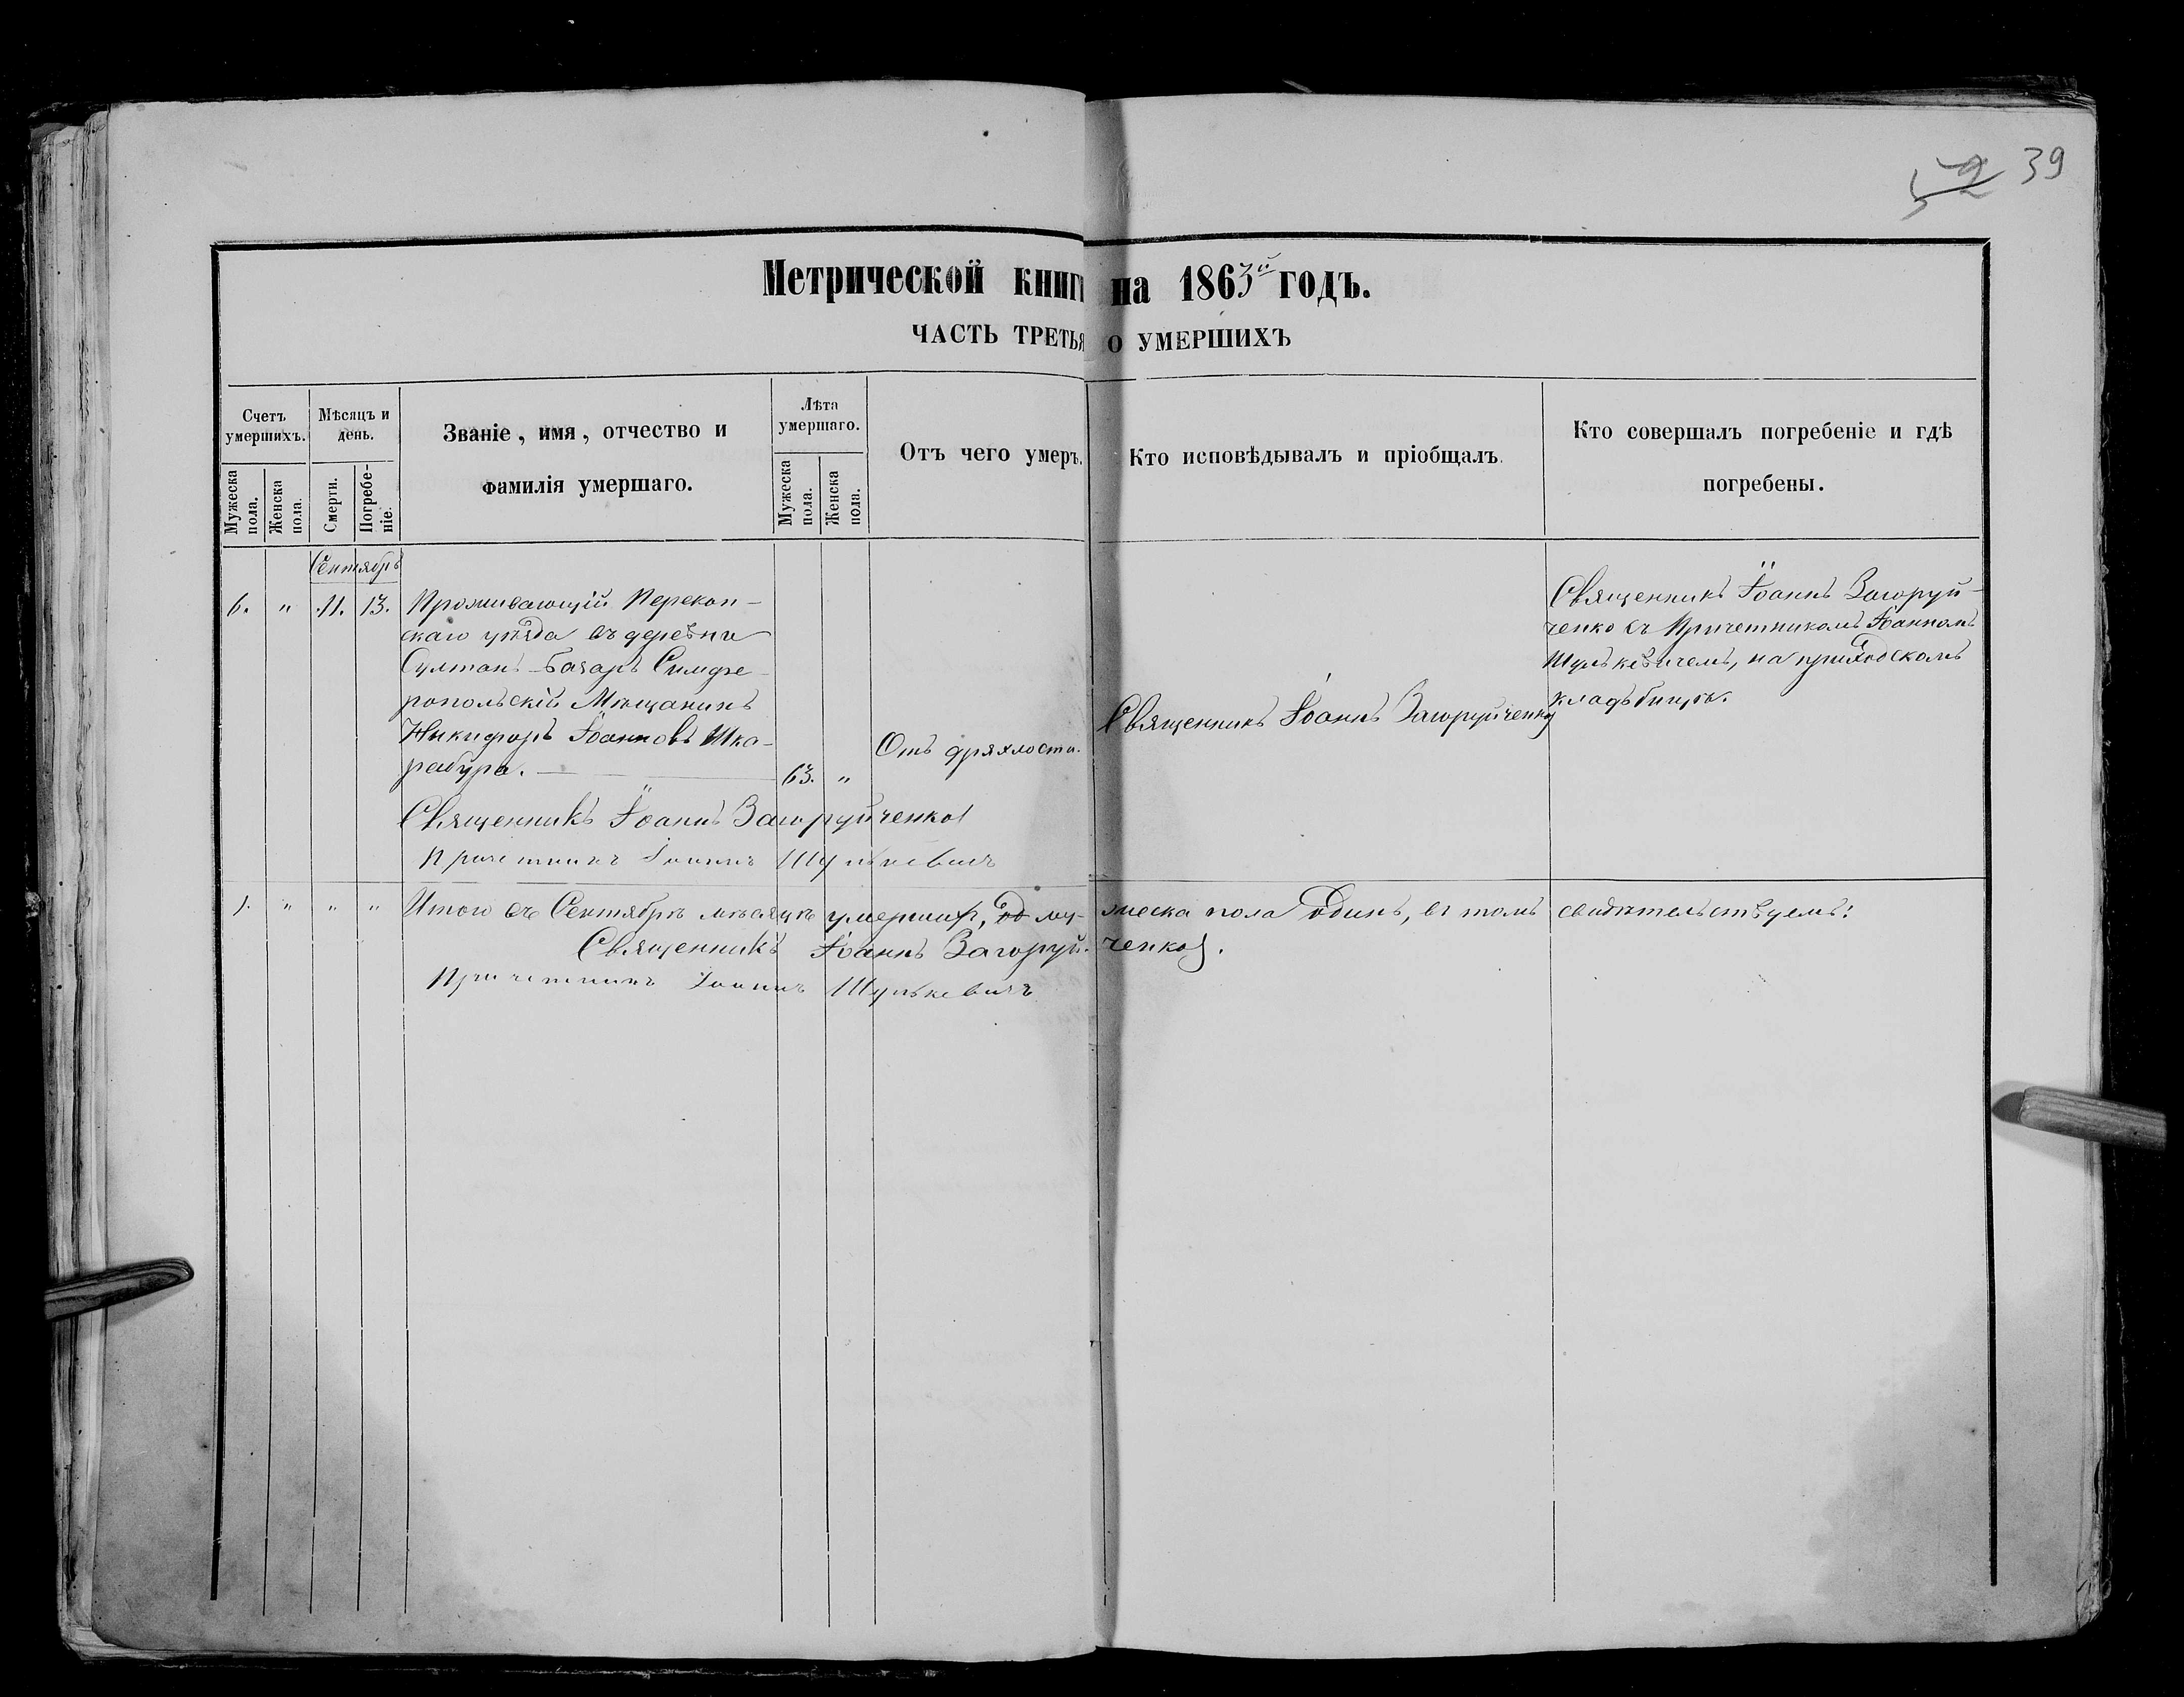 52 39
Метрической книги на 1863й годъ.
ЧАСТЬ ТРЕТЬЯ О УМЕРШИХЪ
Счетъ умершихъ.
Мужеска пола.
Женска пола.
Мѣсяцъ и день.
Смерти.
Погребе-ніе.
Званіе, имя, отчество и
фамилія умершаго.
Лѣта умершаго.
Мужеска пола.
Женска пола.
Отъ чего умеръ.
Кто исповѣдывалъ и пріобщалъ.
Кто совершалъ погребеніе и гдѣ
погребены.
Сентябрь
6. " 11. 13. Проживающій Перекоп-
скаго уѣзда въ деревни
Султанъ-Базаръ Симфе-
ропольскій Мѣщанинъ
Никифоръ Іоанновъ Шка-
рабура. 63. "
Отъ дряхлости.
Священникъ Іоаннъ Загоруйченко
Священникъ Іоаннъ Загоруй-
ченко съ Причетникомъ Іоанномъ
Шулькевичемъ, на приходскомъ
кладьбищѣ.
Священникъ Іоаннъ Загоруйченко
Причетникъ Іоаннъ Шулькевичъ
1. " " " Итого въ Сентябрѣ мѣсяцѣ умершихъ, му-жеска пола Одинъ, въ томъ свидѣтельствуемъ:
Священникъ Іоаннъ Загоруй-ченко.
Причетникъ Іоаннъ Шулькевичъ